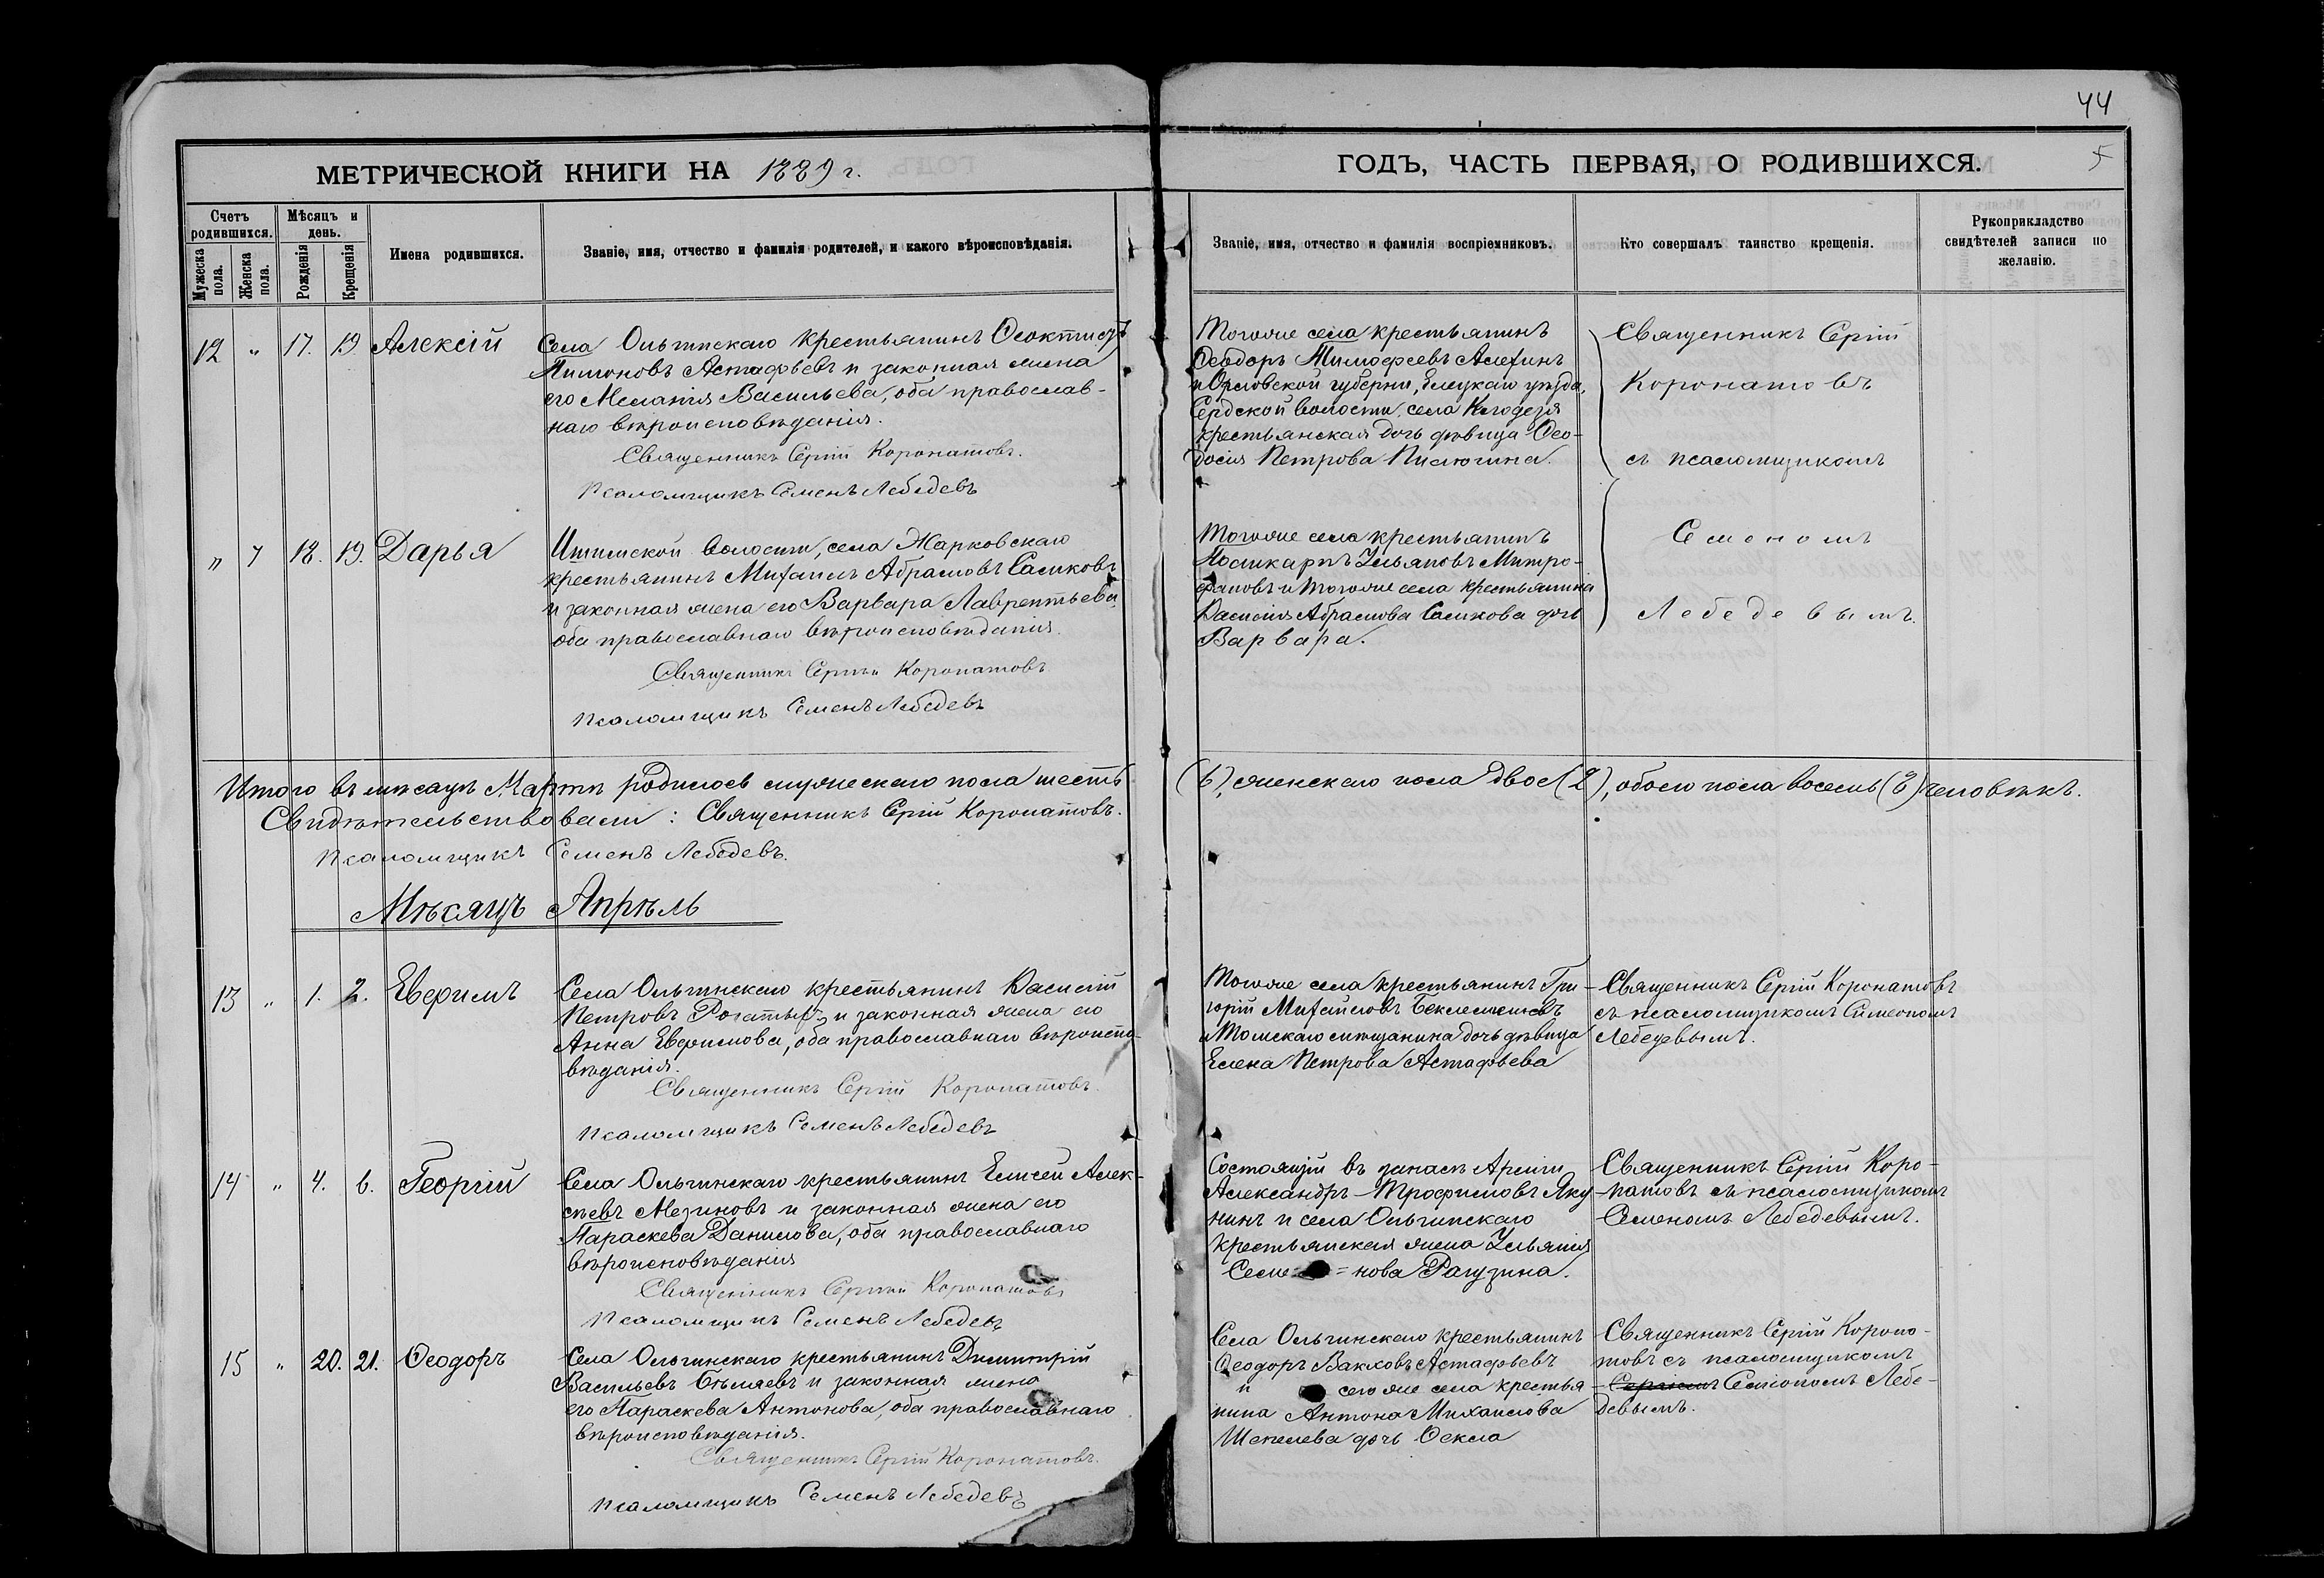 44
МЕТРИЧЕСКОЙ КНИГИ НА 1889 г.
ГОДЪ, ЧАСТЬ ПЕРВАЯ, О РОДИВШИХСЯ.
5
Счетъ родившихся.
Мужеска пола.
Женска пола.
Мѣсяцъ и день.
Рожденія
Крещенія
Имена родившихся.
Званіе, имя, отчество и фамилія родителей, и какого вѣроисповѣданія.
Званіе, имя, отчество и фамилія воспріемниковъ.
Кто совершалъ таинство крещенія.
Рукоприкладство свидѣтелей записи по желанію.
12 " 17. 19 Алексій
Села Ольгинскаго крестьянинъ Ѳеоктистъ
Пимоновъ Астафьевъ и законная жена
его Меланія Васильева, оба православ-
наго вѣроисповѣданія.
Священникъ Сергій Коронатовъ.
Псаломщикъ Семенъ Лебедевъ
Тогоже села крестьянинъ
Ѳеодоръ Тимофеевъ Алехинъ
и Орловской губерни, Елецкаго уѣзда,
волости, села Колодезя
крестьянская дочь дѣвица Ѳео-
досія Петрова Пилюгина.
Священникъ Сергій
Коронатовъ
съ псаломщикомъ
Семеномъ
Лебедевымъ.
" 7 18. 19. Дарья
Ишимской волости, села Жарковскаго
крестьянинъ Михаилъ Абрамовъ Саликовъ
и законная жена его Варвара Лаврентьева
оба православнаго вѣроисповѣданія.
Священникъ Сергій Коронатовъ
Псаломщикъ Семенъ Лебедевъ
Тогоже села крестьянинъ
Поликарпъ Ульяновъ Митро-
фановъ и тогоже села крестьянина
Василія Абрамова Саликова дочь
Варвара.
Итого въ мѣсяцѣ Мартѣ родилось мужескаго пола шесть (6), женскаго пола двое (2), обоего пола восемь (8) человѣкъ.
Свидѣтельствовали: Священникъ Сергій Коронатовъ.
Псаломщикъ Семенъ Лебедевъ.
Мѣсяцъ Апрѣль
13 " 1. 2. Евфимъ
Села Ольгинскаго крестьянинъ Василій
Петровъ Рогатыхъ и законная жена его
Анна Евфимова, оба православнаго вѣроиспо-
вѣданія.
Священникъ Сергій Коронатовъ.
Псаломщикъ Семенъ Лебедевъ
Тогоже села крестьянинъ Гри-
горій Михайловъ Беклемишевъ
и Томскаго мѣщанина дочь дѣвица
Елена Петрова Астафьева
Священникъ Сергій Коронатовъ
съ псаломщикомъ Симеономъ
Лебедевымъ.
14 " 4. 6. Георгій
Села Ольгинскаго крестьянинъ Елисей Алек-
сѣевъ Мезиновъ и законная жена его
Параскева Данилова, оба православнаго
вѣроисповѣданія
Священникъ Сергій Коронатовъ
Псаломщикъ Семенъ Лебедевъ
Состоящій въ запасѣ Арміи
Александръ Трофимовъ Яку-
нинъ и села Ольгинскаго
крестьянская жена Ульянія
Семе=нова Рагузина.
Священникъ Сергій Коро-
натовъ съ псаломщикомъ
Семеномъ Лебедевымъ.
15 " 20. 21. Ѳеодоръ
Села Ольгинскаго крестьянинъ Димитрій
Васильевъ Бѣляевъ и законная жена
его Параскева Антонова, оба православнаго
вѣроисповѣданія.
Священникъ Сергій Коронатовъ.
Псаломщикъ Семенъ Лебедевъ
Села Ольгинскаго крестьянинъ
Ѳеодоръ Вакховъ Астафьевъ
и сего же села крестья
нина Антона Михаилова
Шепелева дочь Ѳекла
Священникъ Сергій Короно-
товъ съ псаломщикомъ
Сергіемъ Семіономъ Лебе-
девымъ.